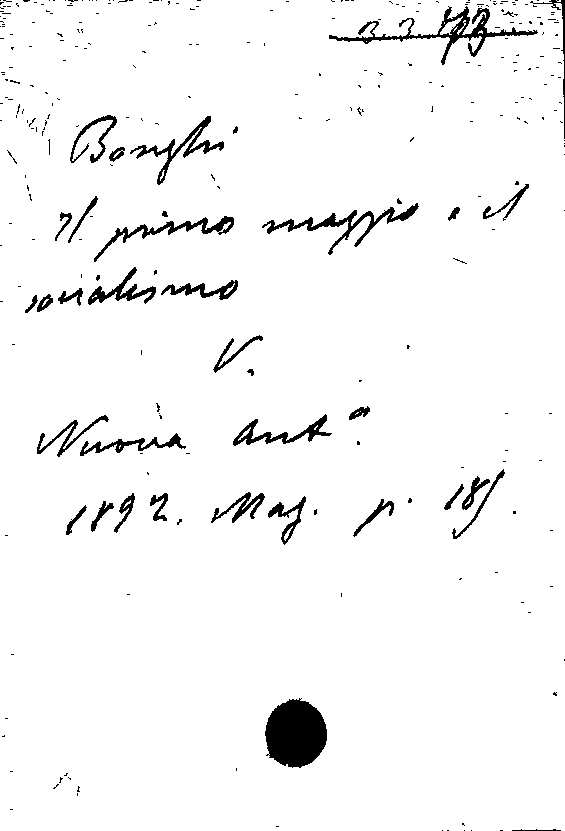 Bonghi
Il primo maggio e il
socialismo
V.
Nuova Ant.ª
1892. Mag. p. 185.